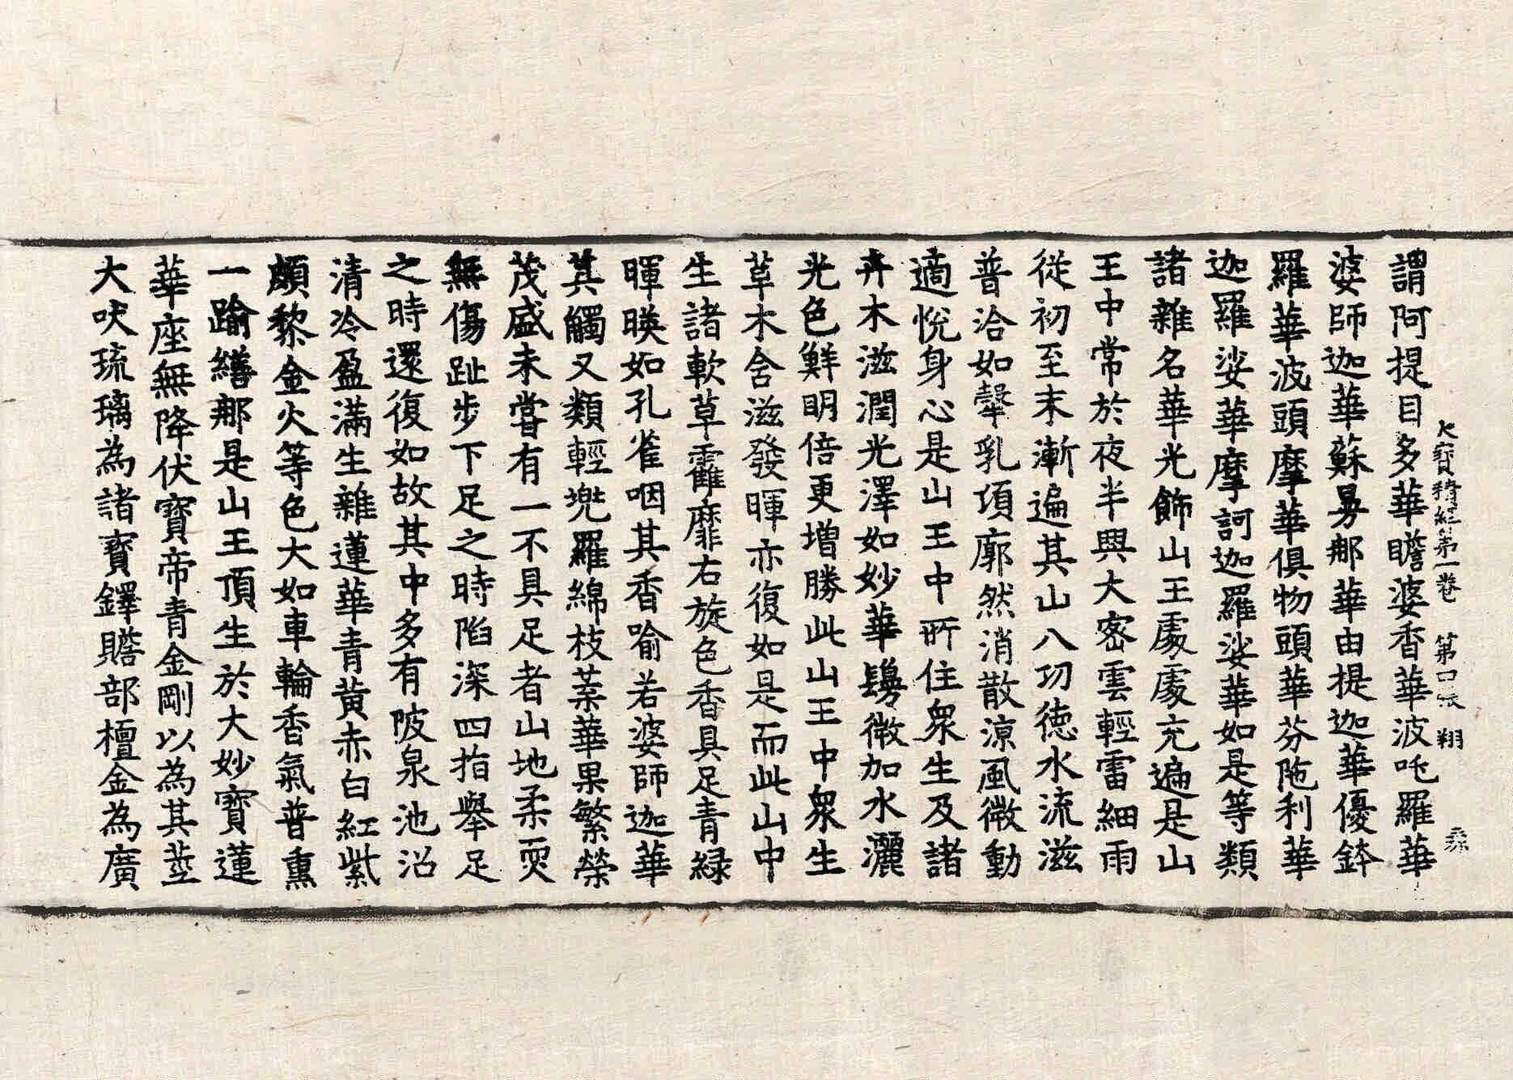 大寶積經第一卷 第口張 翔
謂阿提目多華瞻婆香華波吒羅華
婆師迦華蘇曼那華由提迦華優鉢
羅華波頭摩華俱物頭華芬陁利華
迦羅娑華摩訶迦羅娑華如是等類
諸雜名華光飾山王處處充遍是山
王中常於夜半興大密雲輕雷細雨
從初至末漸遍其山八功德水流滋
普洽如㲉乳頃廓然消散涼風微動
適悅身心是山王中所住衆生及諸
卉木滋潤光澤如妙華鬘微加水灑
光色鮮明倍更增勝此山王中衆生
草木含滋發暉亦復如是而此山中
生諸軟草靃靡右旋色香具足青緑
暉暎如孔雀咽其香喻若婆師迦華
其觸又類輕兠羅綿枝葉華果繁榮
茂盛未甞有一不具足者山地柔耎
無傷趾步下足之時陷深四指舉足
之時還復如故其中多有陂泉池沼
清冷盈滿生雜蓮華青黃赤白紅紫
頗黎金火等色大如車輪香氣普熏
一踰繕那是山王頂生於大妙寶蓮
華座無降伏寶帝青金剛以為其莖
大吠琉璃為諸寶鐸贍部檀金為廣